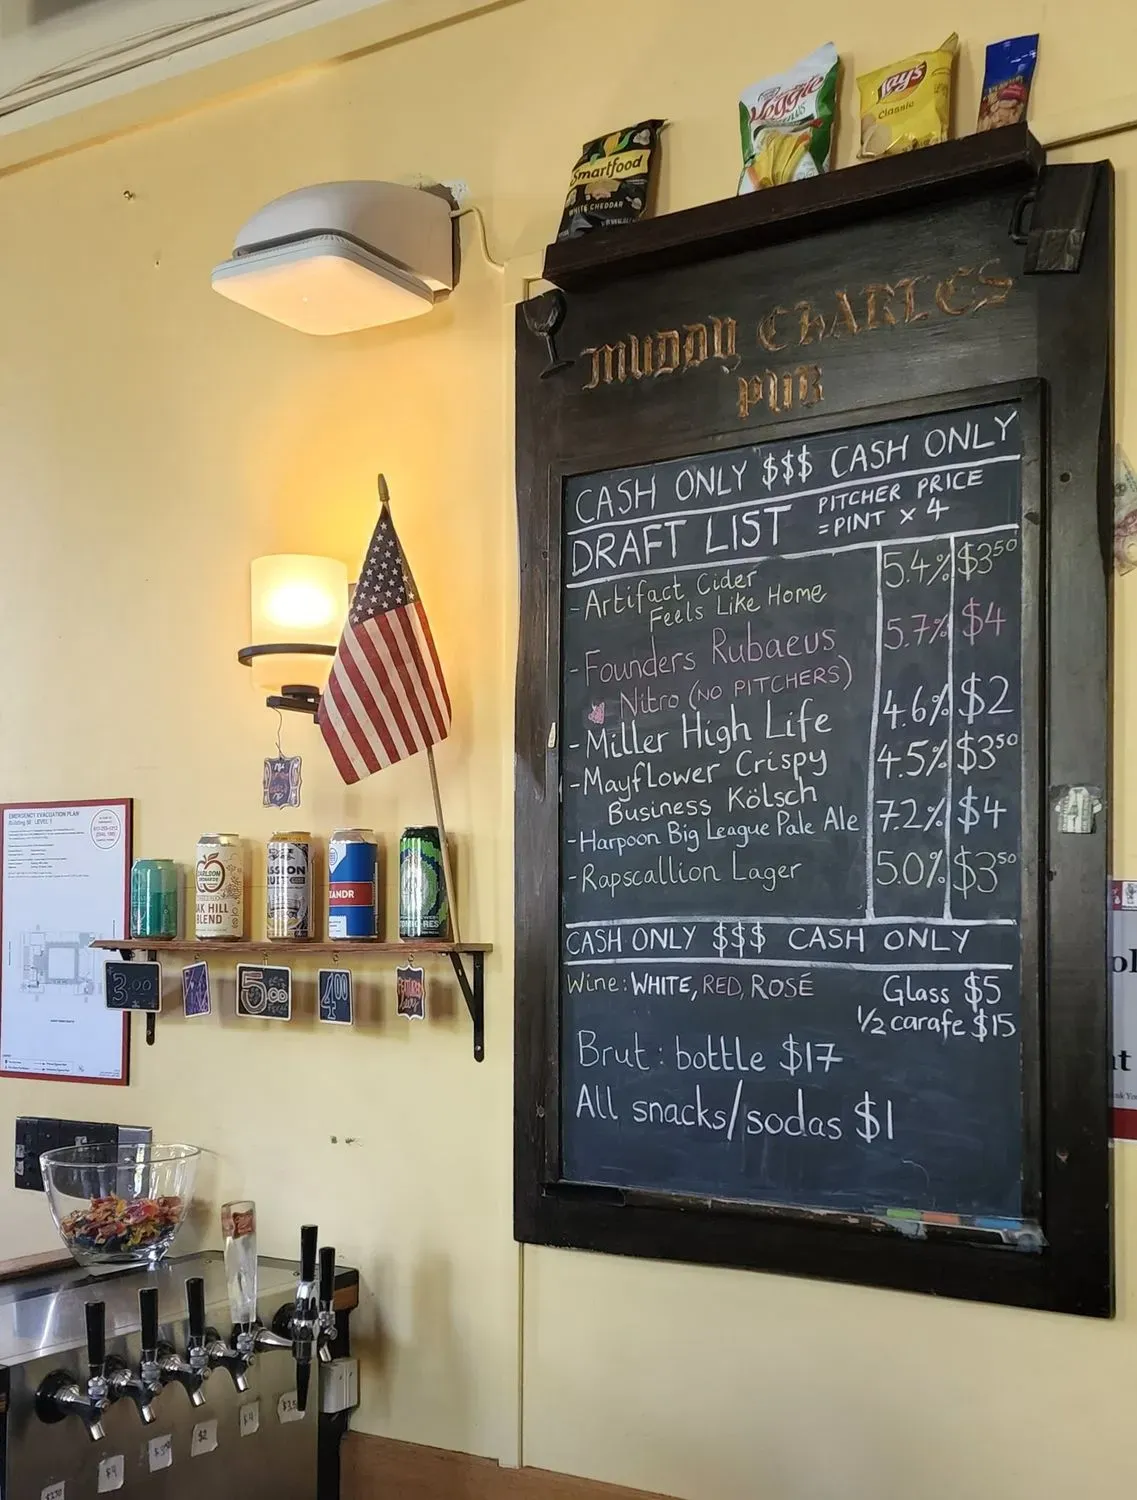 Smartfood
WHITE CHEDDAR
Veggie
Lay's
Classic
MUDDY CHARLES
PUB
CASH ONLY $$$ CASH ONLY
DRAFT LIST PITCHER PRICE
=PINT x 4
-Artifact Cider 5.4% $3⁵⁰
Feels Like Home
-Founders Rubaeus 5.7% $4
Nitro (NO PITCHERS)
-Miller High Life 4.6% $2
-Mayflower Crispy 4.5% $3⁵⁰
Business Kölsch
-Harpoon Big League Pale Ale 7.2% $4
-Rapscallion Lager 5.0% $3⁵⁰
CASH ONLY $$$ CASH ONLY
Wine: WHITE, RED, ROSÉ Glass $5
½ carafe $15
Brut: bottle $17
All snacks/sodas $1
EMERGENCY EVACUATION PLAN
Building 50 LEVEL 1
CARLSON
ORCHARDS
OAK HILL
BLEND
3.00
5.00
4.00
$4
$2
$4